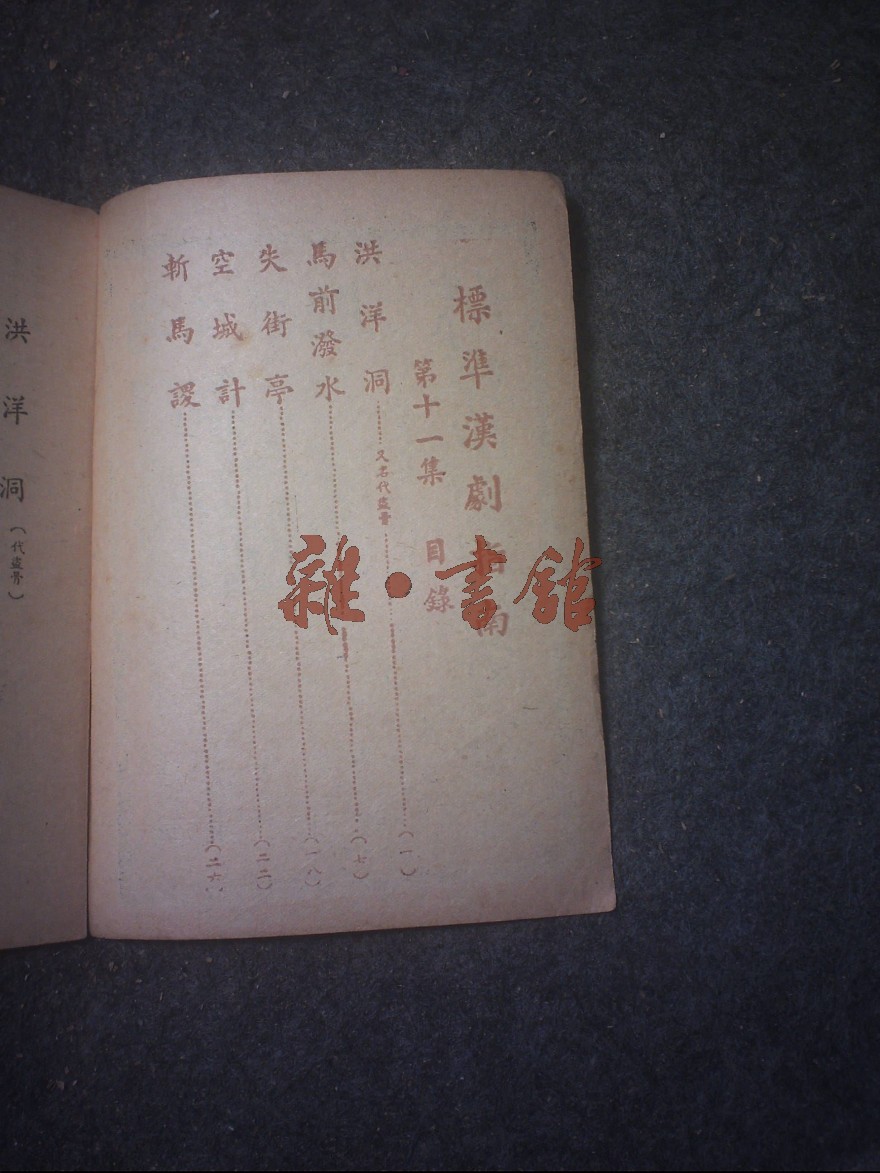 標準漢劇指南
第十一集 目錄
洪洋洞……又名代盜骨……(一)
馬前潑水……(七)
失街亭……(一八)
空城計……(二二)
斬馬謖……(二六)
洪洋洞(代盜骨)
雜·書館